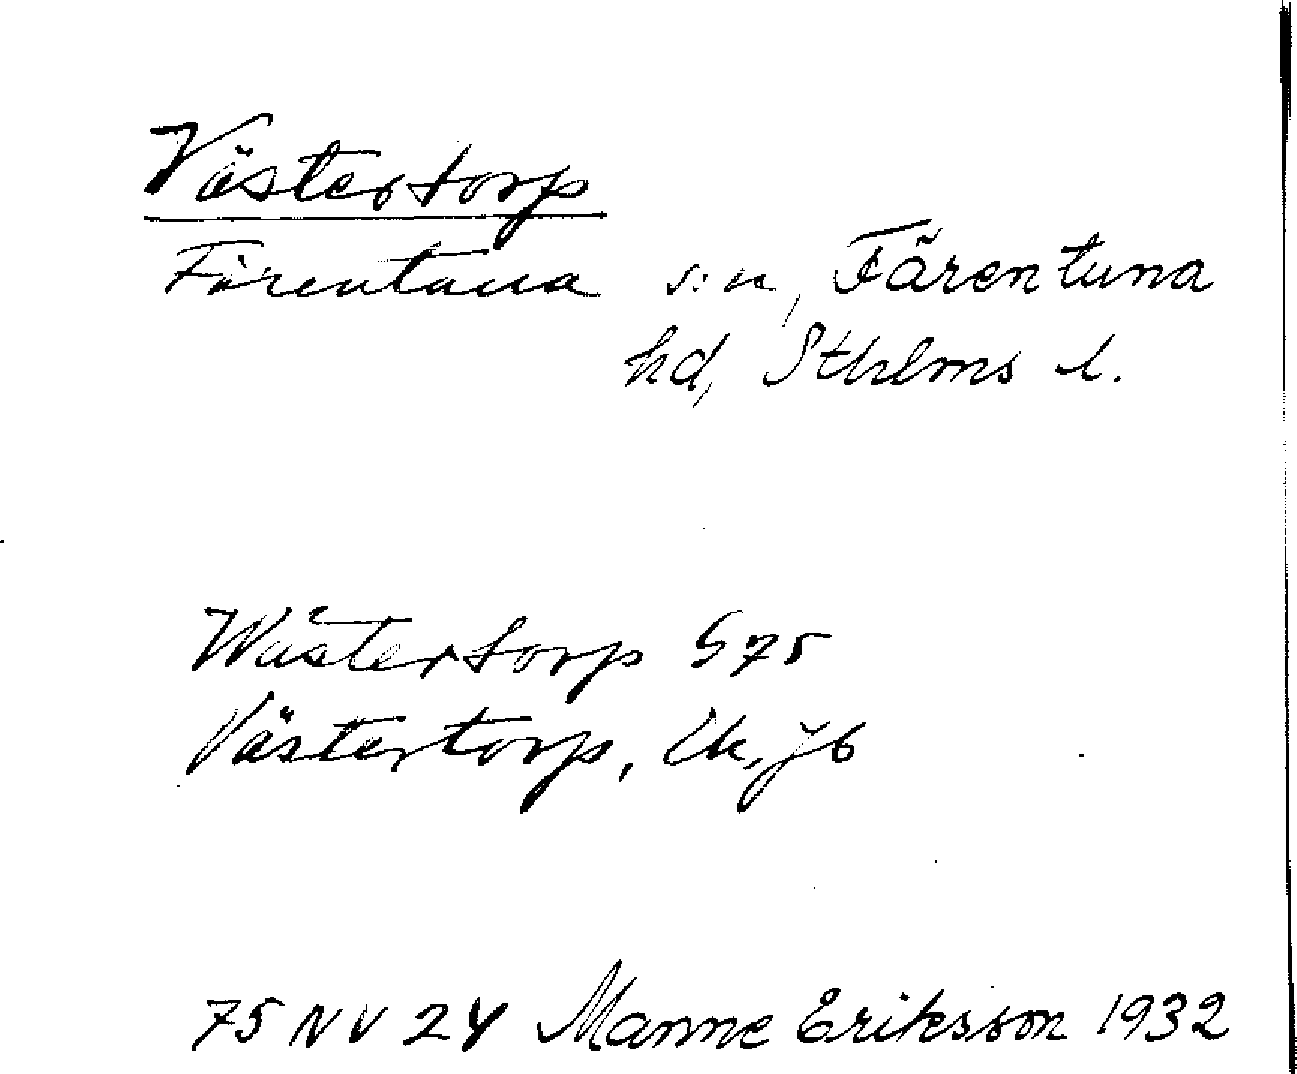 Västertorp
Färentuna s:n, Färentuna
hd, Sthlms l.
Wästertorp G75
Västertorp, Uk, Jb
75 NV 24 Manne Eriksson 1932